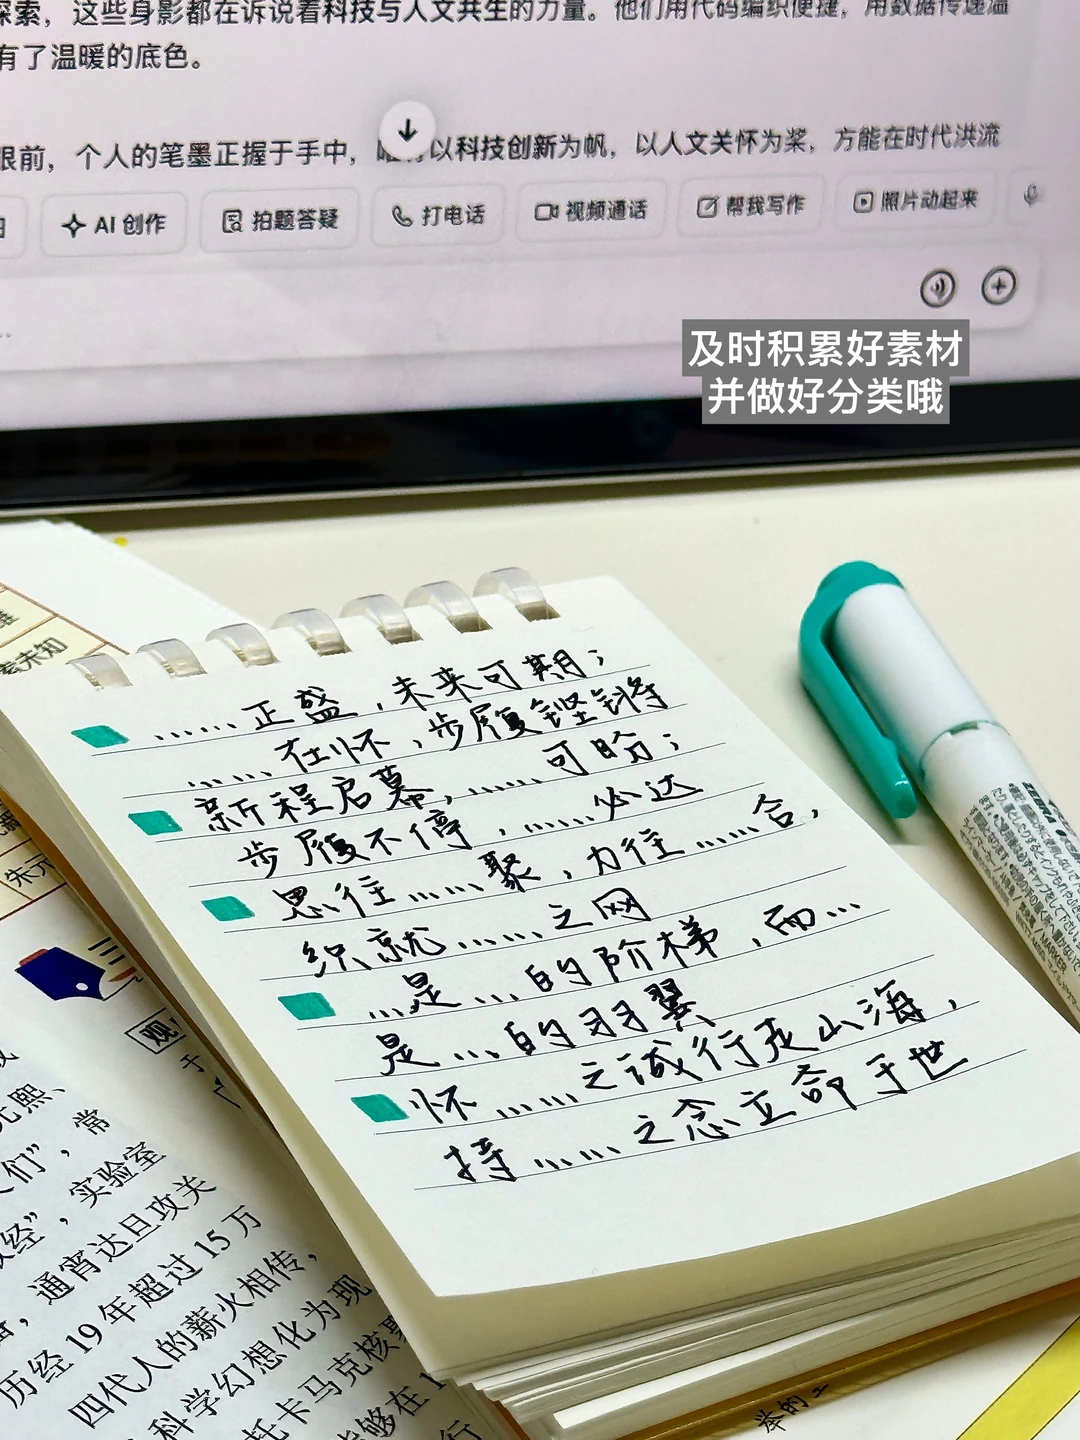 探索，这些身影都在诉说着科技与人文共生的力量。他们用代码编织便捷，用数据传递温
有了温暖的底色。
眼前，个人的笔墨正握于手中，以科技创新为帆，以人文关怀为桨，方能在时代洪流
AI 创作 拍题答疑 打电话 视频通话 帮我写作 照片动起来
及时积累好素材
并做好分类哦
……正盛，未来可期；
……在怀，步履铿锵
新程启幕，……可盼；
步履不停，……必达
思往……聚，力往……合，
织就……之网
…是…的阶梯，而…
是…的羽翼
怀……之诚行走山海，
持……之念立命于世
未知
朱元
三
观
于
光熙、
们”，常
经”，实验室
，通宵达旦攻关
历经 19 年超过 15 万
四代人的薪火相传，
科学幻想化为现
托卡马克核聚
能够在 1
行
举的
ZEBRA